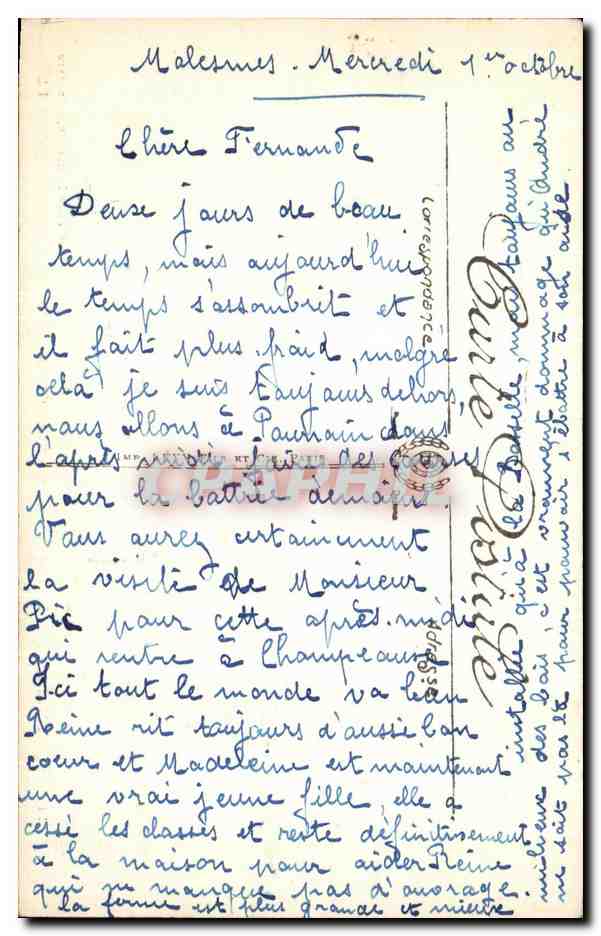 Molesmes. Mercredi 1er octobre
Chère Fernande
Deux jours de beau
temps, mais aujourd'hui
le temps s'assombrit et
il fait plus froid, malgré
celà je suis toujours dehors,
nous allons à Pourrain dans
l'après midi faire des courses
pour la battrie demain.
Vous aurez certainement
la visite de Monsieur
Pic pour cette après-midi
qui rentre à Champeaux
Ici tout le monde va bien
Reine rit toujours d'aussi bon
coeur et Madeleine est maintenant
une vrai jeune fille, elle a
cessé les classes et reste définitivement
à la maison pour aider Reine
qui ne manque pas d'ouvrage.
la ferme est plus grande et mieux
installée qu'à la Basseille, mais toujours au
milieux des bois, c'est vraiment dommage qu'André
ne soit pas là pour pouvoir s'ébattre à son aise.
Carte Postale
Correspondance
Adresse
IMP. ET CIE PARIS
CPAPHIL